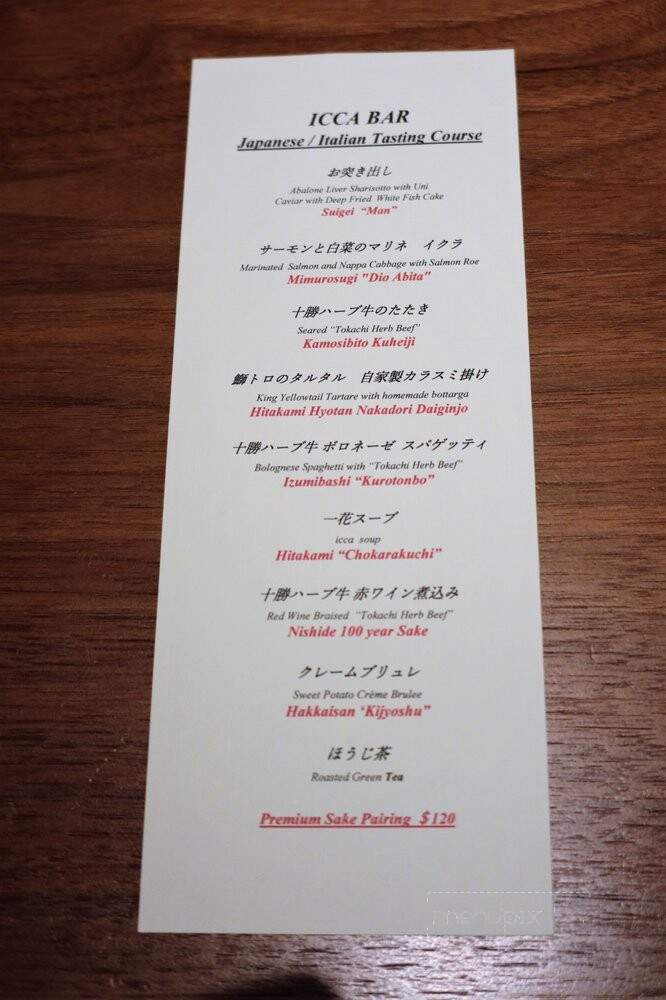 ICCA BAR
Japanese / Italian Tasting Course
お突き出し
Abalone Liver Sharisotto with Uni
Caviar with Deep Fried White Fish Cake
Suigei “Man”
サーモンと白菜のマリネ　イクラ
Marinated Salmon and Nappa Cabbage with Salmon Roe
Mimurosugi "Dio Abita"
十勝ハーブ牛のたたき
Seared “Tokachi Herb Beef”
Kamosibito Kuheiji
鰤トロのタルタル　自家製カラスミ掛け
King Yellowtail Tartare with homemade bottarga
Hitakami Hyotan Nakadori Daiginjo
十勝ハーブ牛 ボロネーゼ スパゲッティ
Bolognese Spaghetti with “Tokachi Herb Beef”
Izumibashi “Kurotonbo”
一花スープ
icca soup
Hitakami “Chokarakuchi”
十勝ハーブ牛 赤ワイン煮込み
Red Wine Braised “Tokachi Herb Beef”
Nishide 100 year Sake
クレームブリュレ
Sweet Potato Crème Brulee
Hakkaisan ‘Kijyoshu”
ほうじ茶
Roasted Green Tea
Premium Sake Pairing $120